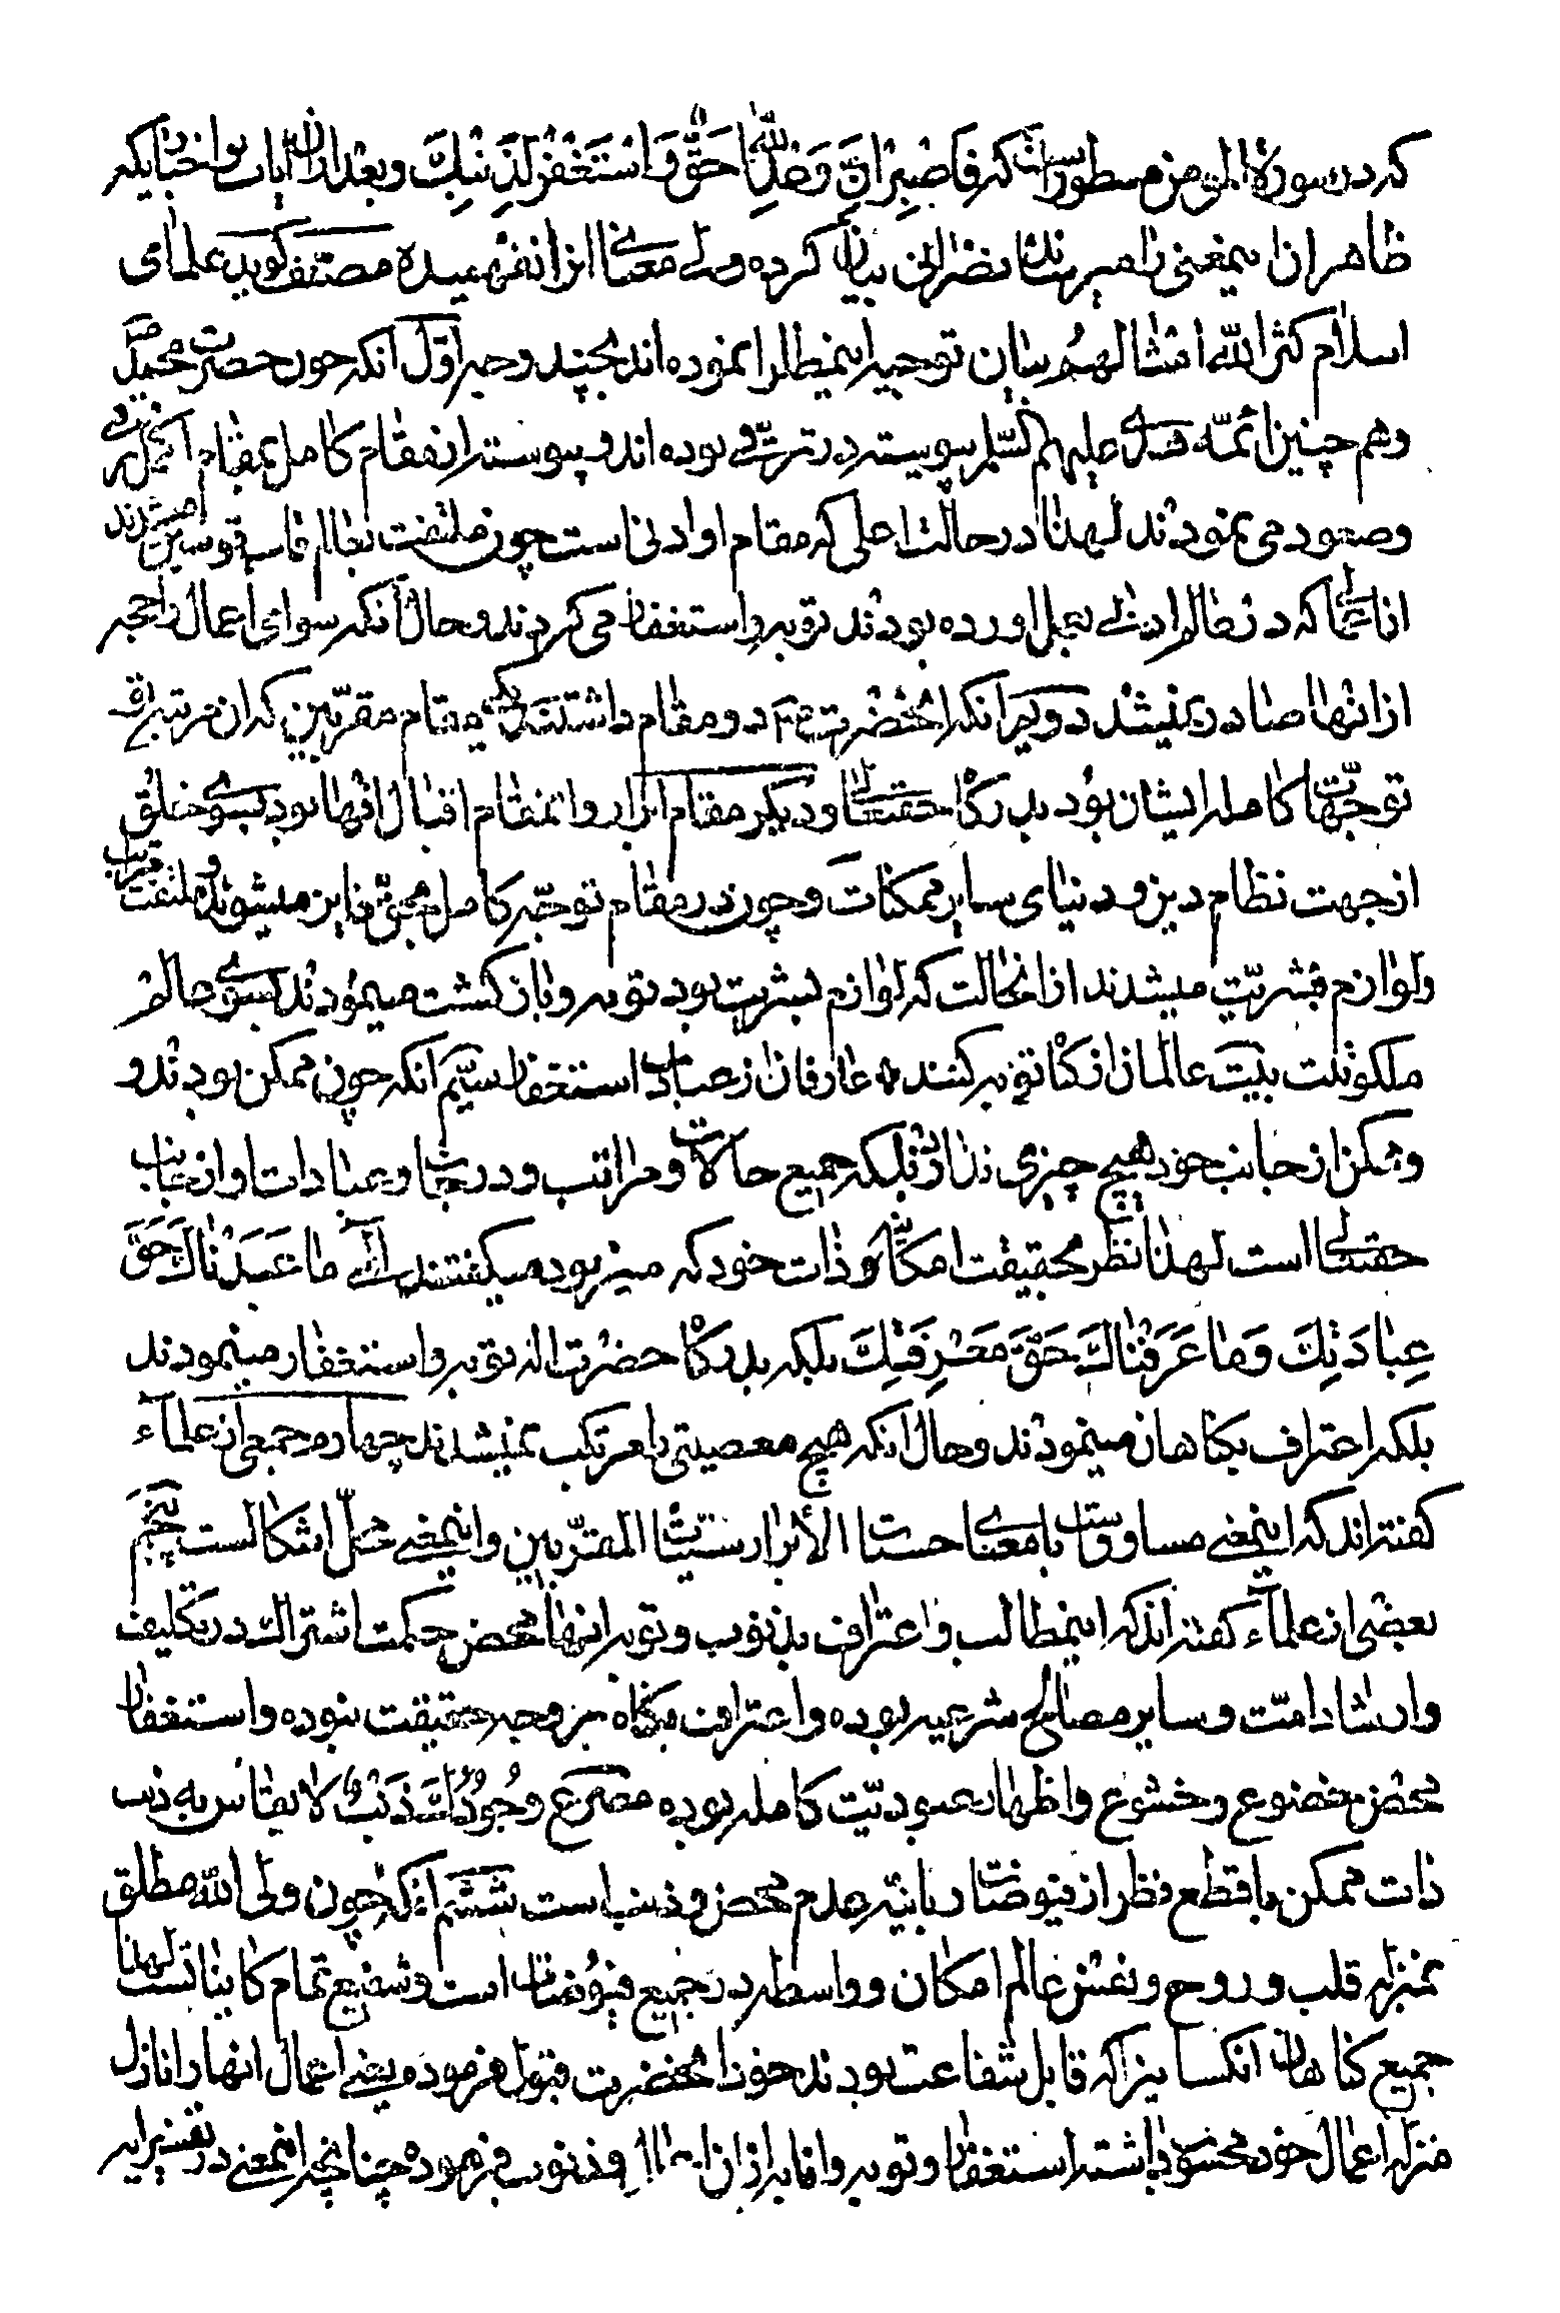 که در سورة المؤمن مسطور است که فَاصْبِرْ اِنَّ وَعْدَ اللّٰهِ حَقٌّ وَاسْتَغْفِرْ لِذَنْبِكَ و بعد از ان ایات و اخباریکه
ظاهر ان اینمعنی را میرساند نصرانی بیان کرده ولی معنای انرا نفهمیده مصنّف کوید علمای
اسلام کثر اللّه امثالهم بیان توجیه اینمطلب را نموده اند بچند وجه اوّل انکه چون حضرت محمّد ص
و هم چنین ائمّه هدی علیهم السّلم پیوسته در ترقّی بوده اند و پیوسته از مقام کامل بمقام اکمل ترقی
و صعود می نمودند لهذا در حالت اعلی که مقام او ادنی است چون ملتفت بعالم قاب قوسین میشدند
از اعمالی که در عالم ادنی بعمل اورده بودند توبه و استغفار می کردند و حال انکه سوای اعمال راجحه
از انها صادر نمیشد دویم انکه انحضرت ع دو مقام داشتند یکی مقام مقرّبین که ان مرتبه
توجّهات کامله ایشان بود بدرکاه حقتعالی و دیکر مقام ابرار و انمقام اقبال انها بود بسوی خلق
از جهت نظام دین و دنیای سایر ممکنات و چون در مقام توجّه کامل بحقّ فایز میشوند و ملتفت مراتب
و لوازم بشریّت میشدند از انحالت که لوازم بشریت بود توبه و باز کشت مینمودند بسوی عالم
ملکوتیّت بیت عالمان از کناه توبه کنند ه عارفان از عبادت استغفار سیّم انکه چون ممکن بودند و
ممکن از جانب خود هیچ چیزی ندارد بلکه جمیع حالات و مراتب و درجات و عبادات او از جانب
حقتعالی است لهذا نظر بحقیقت امکانی و ذات خود که میز بوده میکفتند الهی مٰا عَبَدْنٰاكَ حَقَّ
عِبٰادَتِكَ وَمٰا عَرَفْنٰاكَ حَقَّ مَعْرِفَتِكَ بلکه بدرکاه حضرت اله توبه و استغفار مینمودند
بلکه اعتراف بکناهان مینمودند و حال انکه هیچ معصیتی را مرتکب نمیشدند چهارم جمعی از علمآء
کفته اند که اینمعنی مساوق است با معنای حسنات الأبرار سیّئات المقرّبین و اینمعنی محلّ اشکالست پنجم
بعضی از علمآء کفته اند که اینمطالب و اعتراف بذنوب و توبه انها محض حکمت اشتراک در تکلیف
و ارشاد امّت و سایر مصالح شرعیه بوده و اعتراف بکناه بر وجه حقیقت نبوده و استغفار
محض خضوع و خشوع و اظهار عبودیّت کامله بوده مصرع وُجُودُكَ ذَنْبٌ لا یقاس به ذنب
ذات ممکن با قطع نظر از فیوضات ربانیّه عدم محض و ذنب است ششم انکه چون ولی اللّه مطلق
بمنزله قلب و روح و نفس عالم امکان و واسطه در جمیع فیوضات است و شفیع تمام کایناتست لهذا
جمیع کناهان انکسانیرا که قابل شفاعت بودند خود انحضرت قبول فرموده یعنی اعمال انها را نازل
منزله اعمال خود محسوب داشته استغفار و توبه و انابه از ان و ذنوب فرموده چنانچه اینمعنی در تفسیر ایه